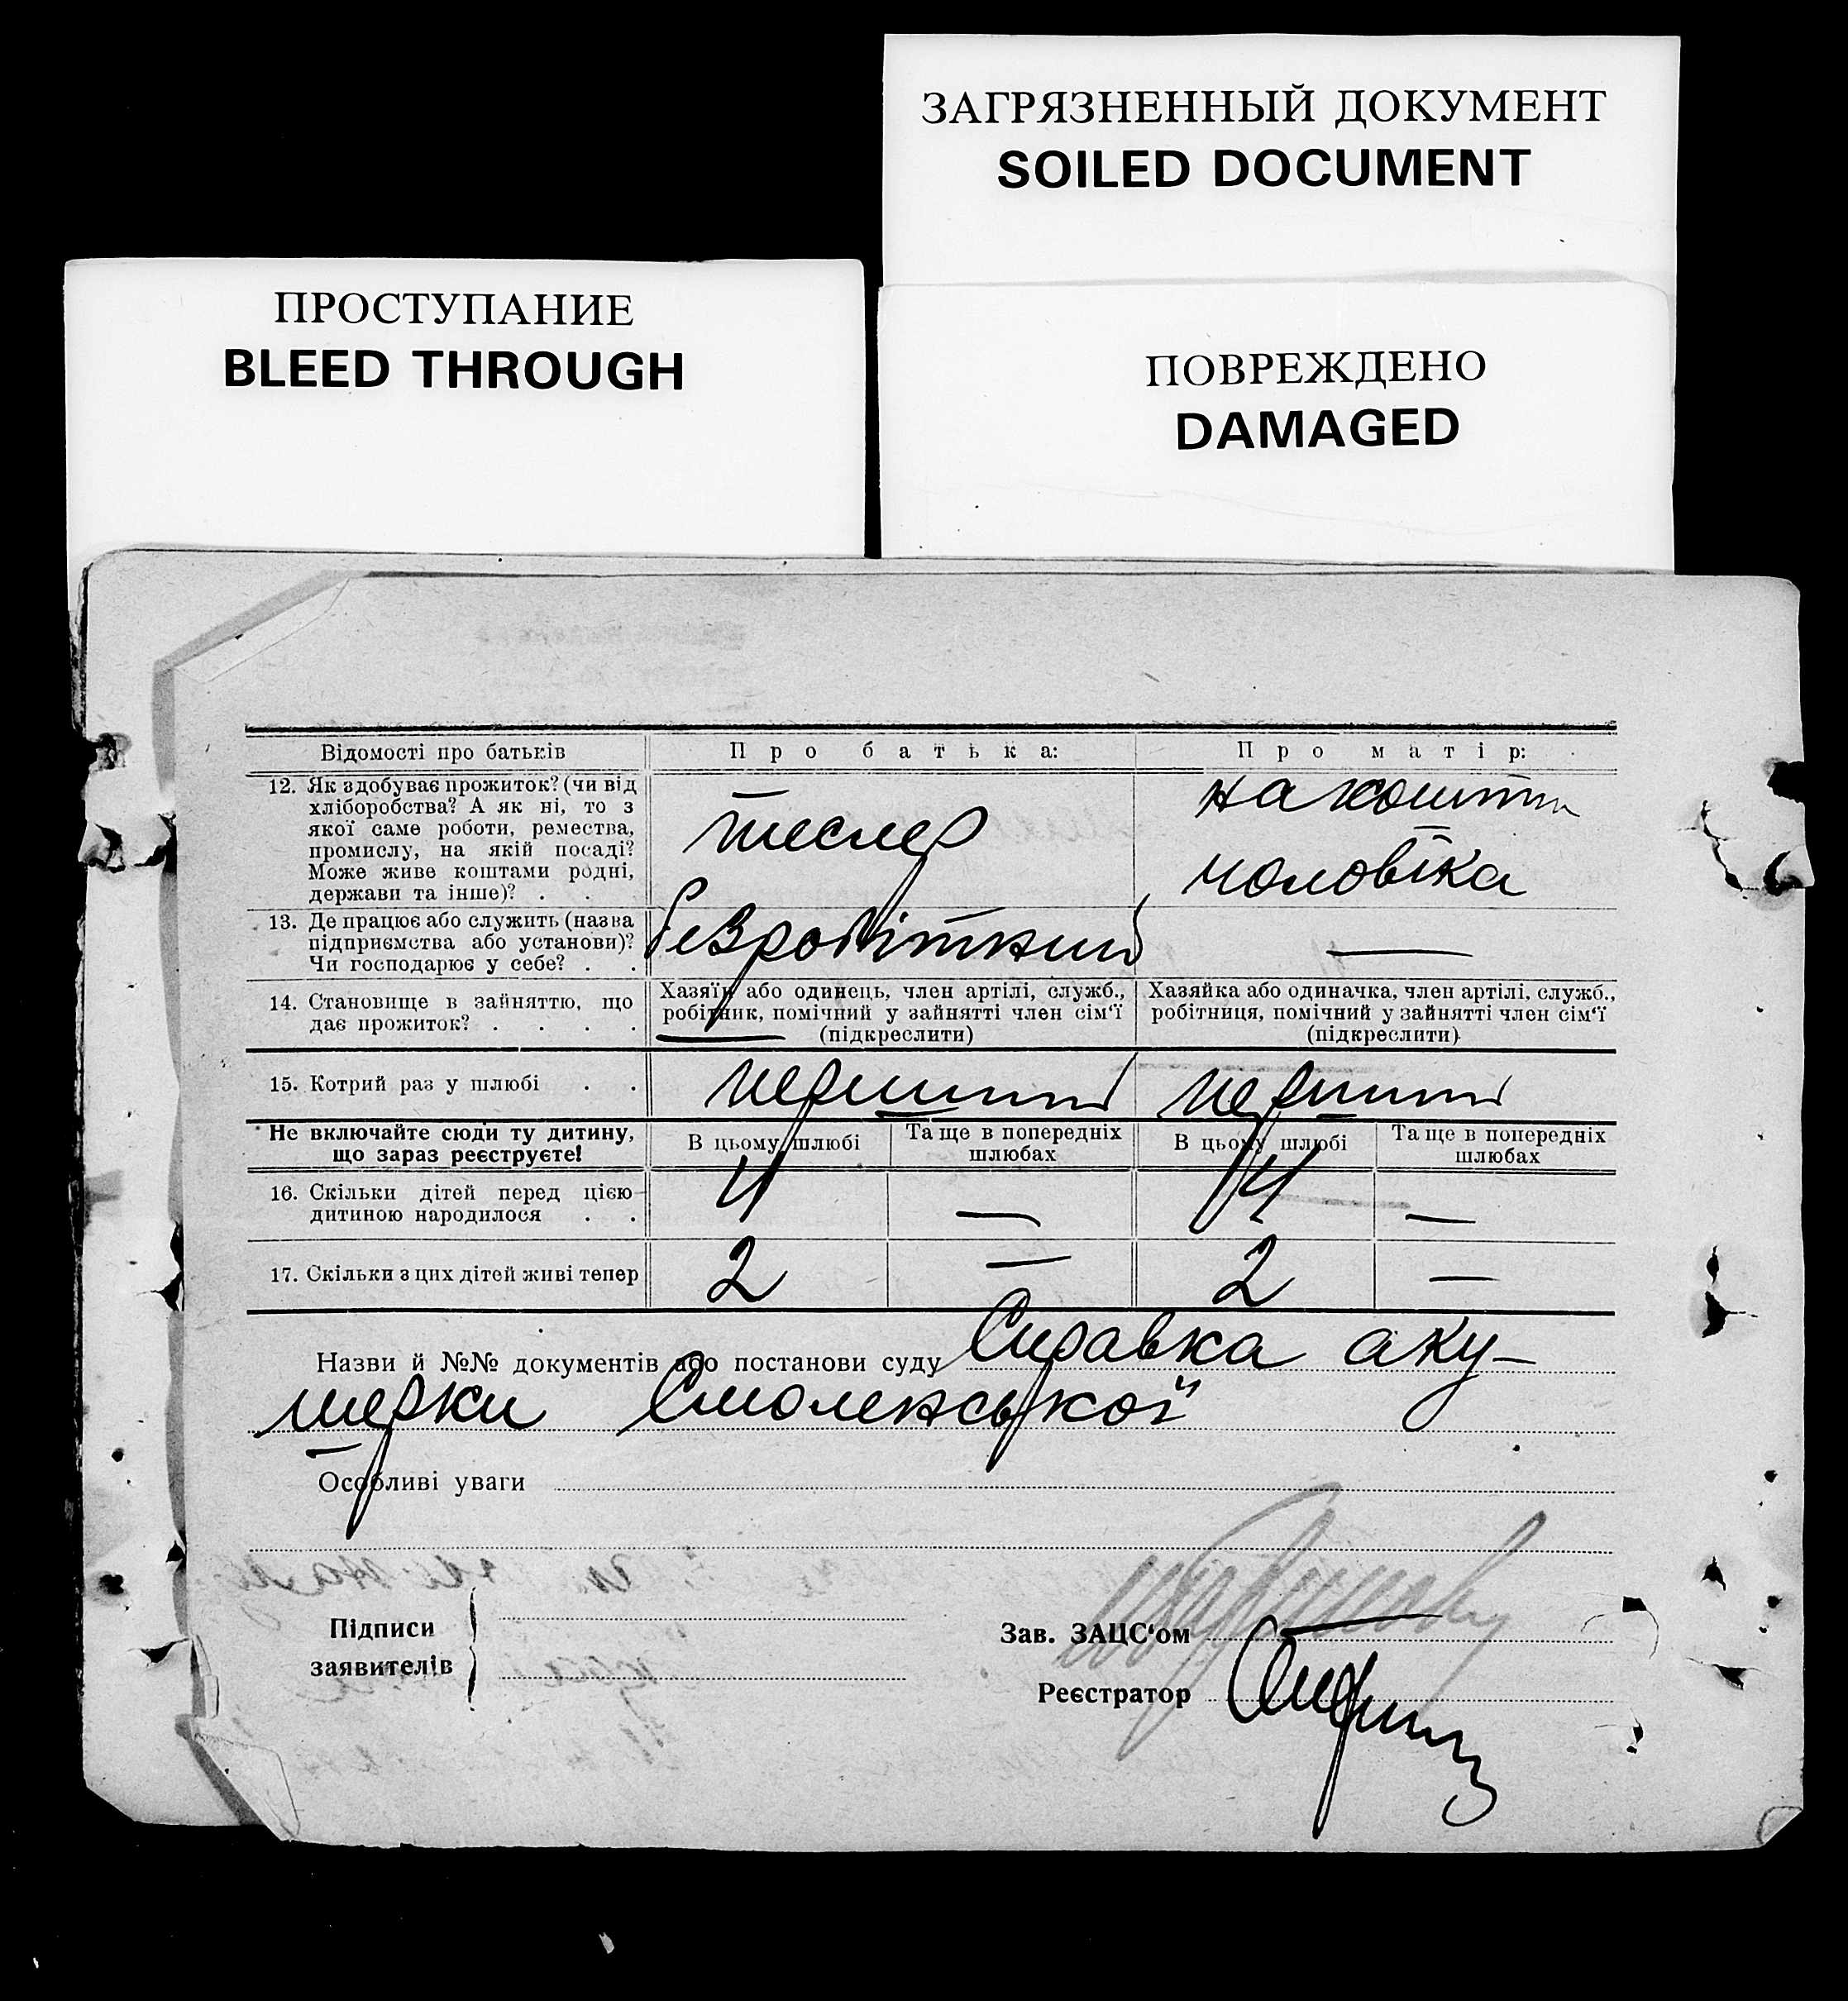 ЗАГРЯЗНЕННЫЙ ДОКУМЕНТ
SOILED DOCUMENT
ПРОСТУПАНИЕ
BLEED THROUGH
ПОВРЕЖДЕНО
DAMAGED
Відомості про батьків
Про батька:
Про матір:
12. Як здобуває прожиток? (чи від
хліборобства? А як ні, то з
якої саме роботи, ремества,
промислу, на якій посаді?
Може живе коштами родні,
держави та інше)? . .
тесляр
на кошти
чоловіка
13. Де працює або служить (назва
підприємства або установи)?
Чи господарює у себе? . .
безробітний
—
14. Становище в зайняттю, що
дає прожиток? . . . .
Хазяїн або одинець, член артілі, служб.,
робітник, помічний у зайнятті член сім'ї
(підкреслити)
Хазяйка або одиначка, член артілі, служб.,
робітниця, помічний у зайнятті член сім'ї
(підкреслити)
15. Котрий раз у шлюбі . .
перший
перший
Не включайте сюди ту дитину,
що зараз реєструєте!
В цьому шлюбі
Та ще в попередніх
шлюбах
В цьому шлюбі
Та ще в попередніх
шлюбах
16. Скільки дітей перед цією
дитиною народилося . .
4
—
4
—
17. Скільки з цих дітей живі тепер
2
—
2
—
Назви й №№ документів або постанови суду Справка аку-
шерки Смоленської
Особливі уваги
Підписи
заявителів
Зав. ЗАЦС'ом
Реєстратор